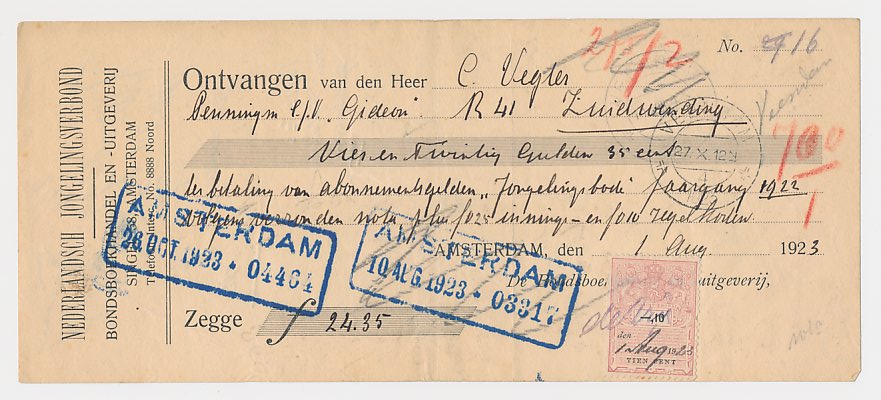 NEDERLANDSCH JONGELINGSVERBOND
BONDSBOEKHANDEL EN -UITGEVERIJ
AMSTERDAM
No. 8888 Noord
No. 16
21/12
Ontvangen van den Heer C. Vegter
Penningm C.J.V. „Gideon" R 41 Zuidwending
Veendam
Vier en Twintig Gulden 35 cent
27.X.12
700
1
ter betaling van abonnementsgelden „Jongelingsbode" Jaargang 1922
volgens verzonden nota plus f 0.25 innings- en f 0.10 zegelkosten
AMSTERDAM, den 1 Aug 1923
AMSTERDAM
26 OCT. 1923 · 04464
AMSTERDAM
10 AUG. 1923 · 03317
De Bondsboe uitgeverij,
Zegge f 24.35
den
1 Aug 1923
TIEN CENT